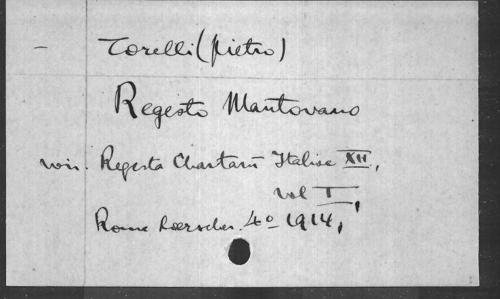 – Torelli (Pietro)
Regesto Mantovano
voir. Regesta Chartarū Italiae XII,
vol I,
Rome Loescher. 4o 1914,